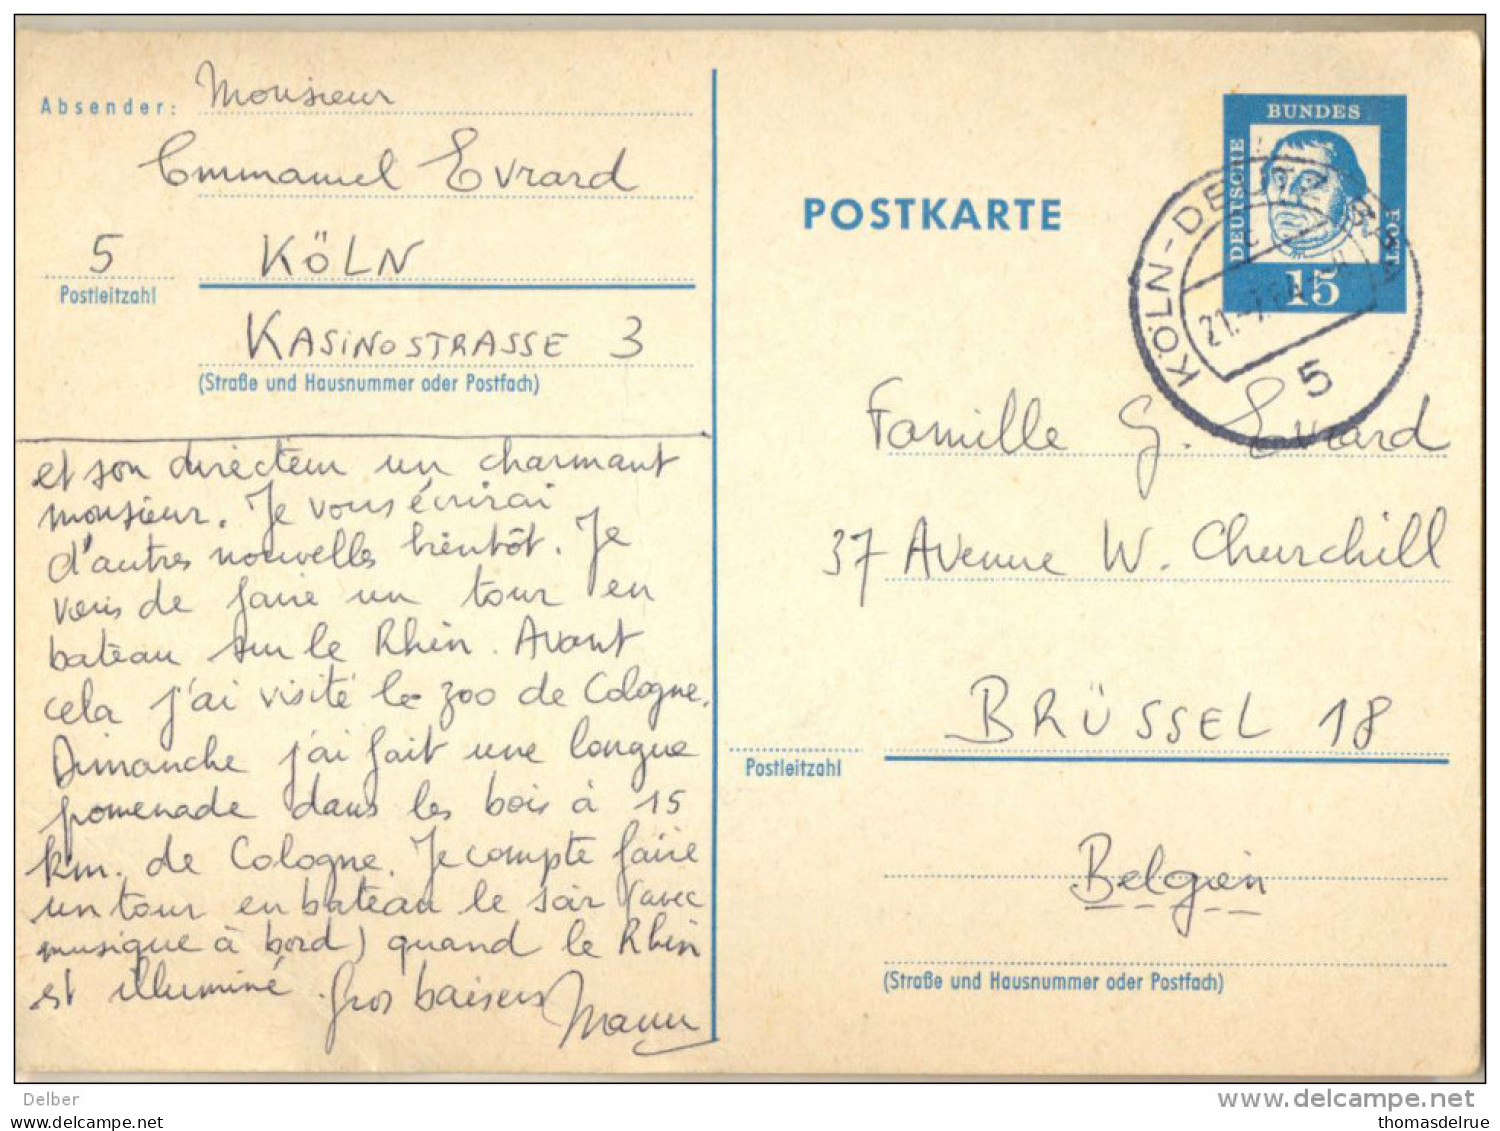 Absender: Monsieur
Emmanuel Evrard
5 KÖLN
Postleitzahl
KASINOSTRASSE 3
(Straße und Hausnummer oder Postfach)
et son directeur un charmant
monsieur. Je vous écrirai
d'autres nouvelles bientôt. Je
viens de faire un tour en
bateau sur le Rhin. Avant
cela j'ai visité le zoo de Cologne.
Dimanche j'ai fait une longue
promenade dans les bois à 15
km. de Cologne. Je compte faire
un tour en bateau le soir (avec
musique à bord) quand le Rhin
est illuminé. Gros baisers
POSTKARTE
DEUTSCHE BUNDES POST
15
KÖLN-DEUTZ
21.-7.64
5
Famille G. Evrard
37 Avenue W. Churchill
BRÜSSEL 18
Postleitzahl
Belgien
(Straße und Hausnummer oder Postfach)
Delber
delcampe.net
www.delcampe.net
thomasdelrue